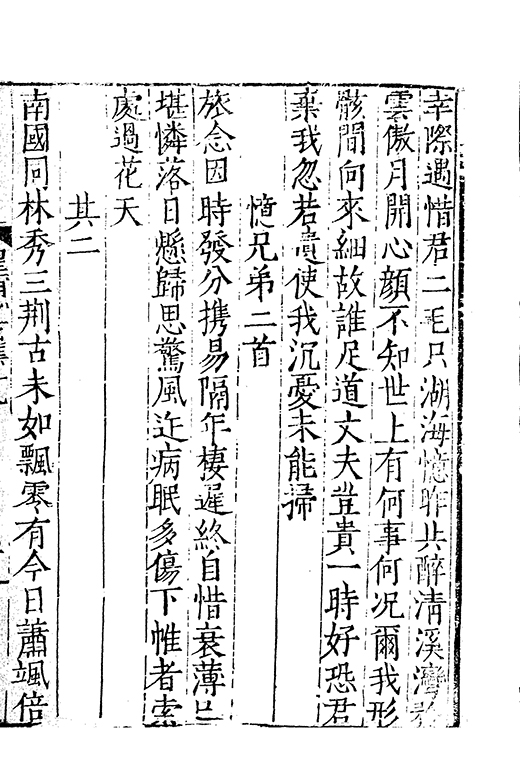 幸際遇惜君二毛只湖海憶昨共醉清溪灣
雲傲月開心顔不知世上有何事何况爾我形
骸間向來細故誰足道丈夫豈貴一時好恐君
棄我忽若遺使我沉憂未能掃
憶兄弟二首
旅念因時發分携易隔年棲遲終自惜衰薄
堪憐落日懸歸思驚風近病眠多傷下帷者索
處過花天
其二
南國同林秀三荆古未如飄零有今日蕭颯倍